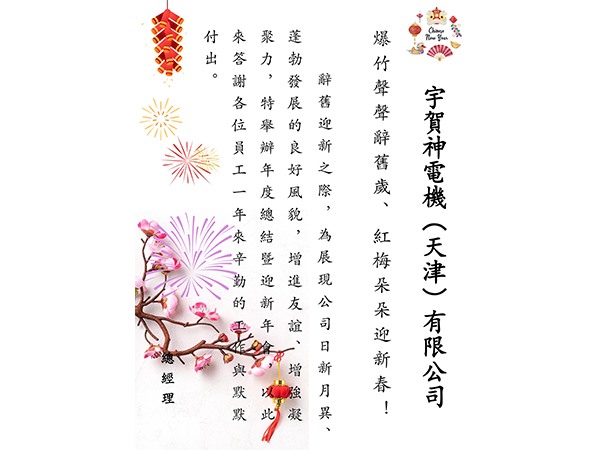 Chinese
New Year
宇賀神電機（天津）有限公司
爆竹聲聲辭舊歲、紅梅朵朵迎新春！
辭舊迎新之際，為展現公司日新月異、
蓬勃發展的良好風貌，增進友誼、增強凝
聚力，特舉辦年度總結暨迎新年會，以此
來答謝各位員工一年來辛勤的工作與默默
付出。
總經理